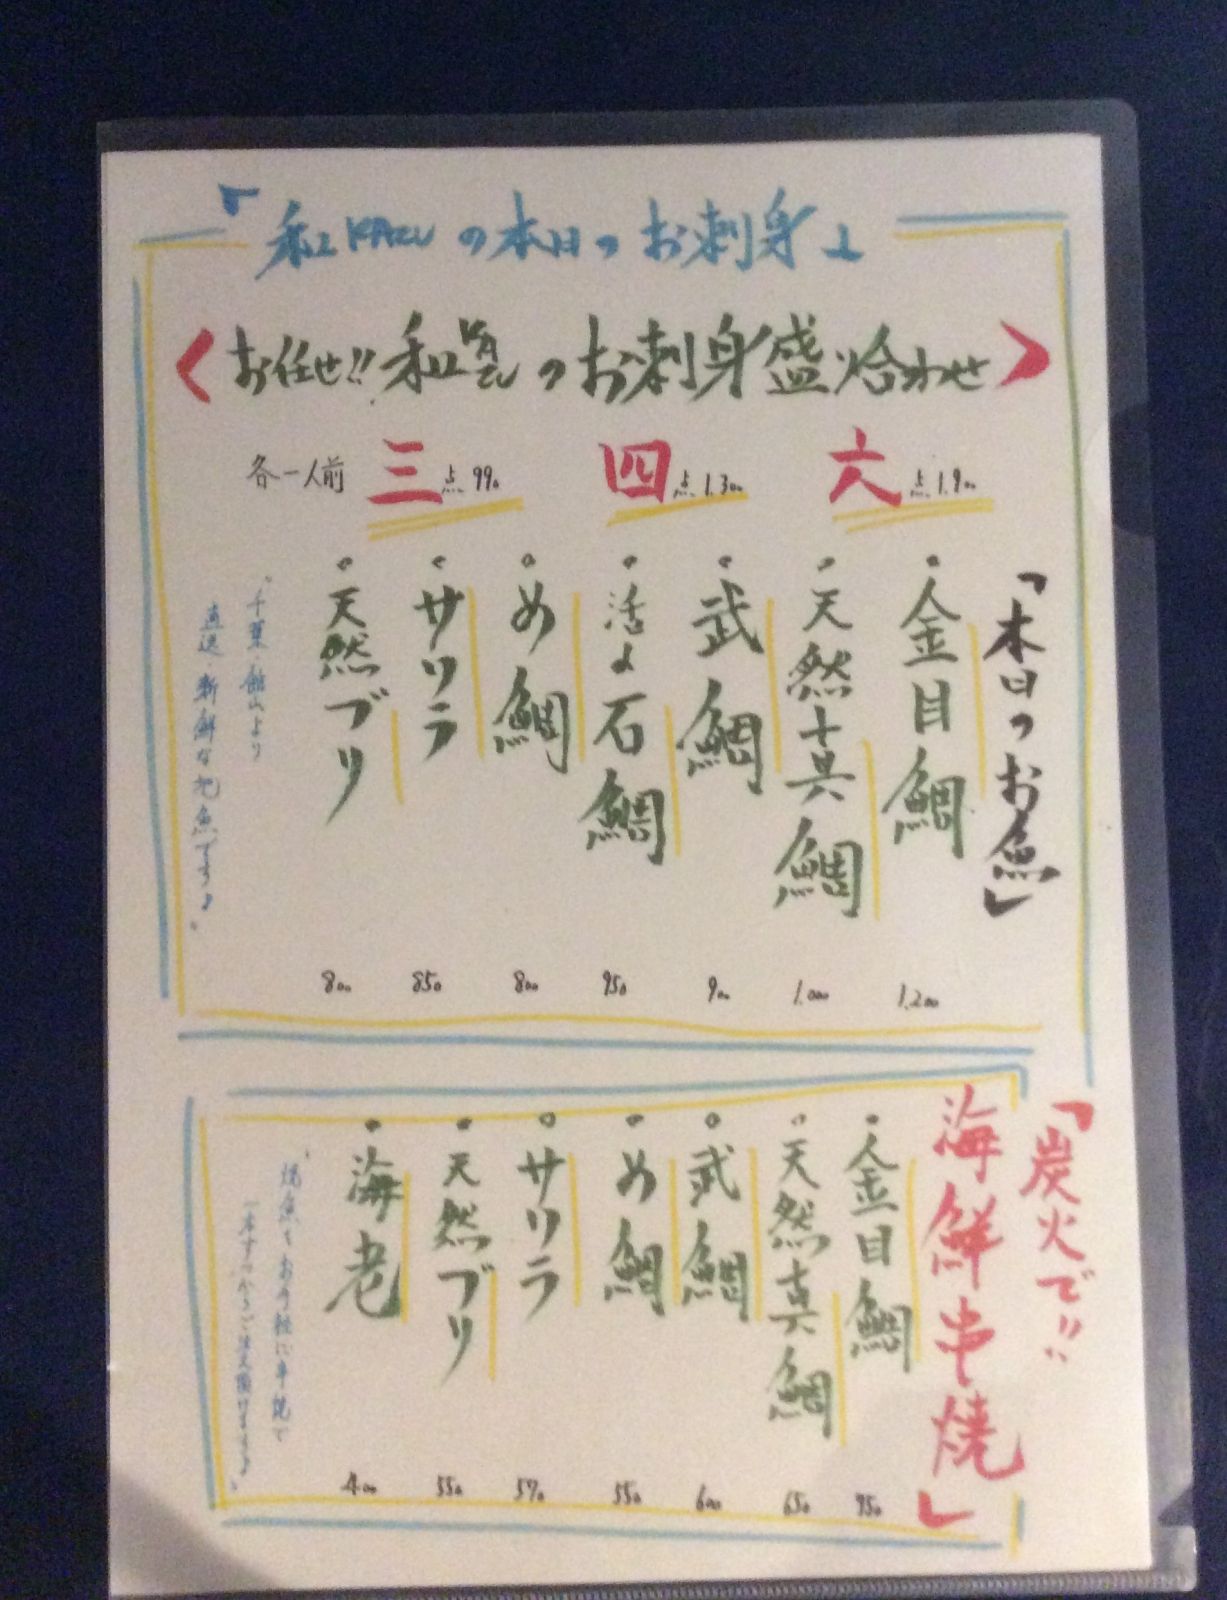 「和KAZUの本日のお刺身」
〈お任せ!!和KAZUのお刺身盛り合わせ〉
各一人前 三点990 四点1.300 六点1.900
「本日のお魚」
・金目鯛 1.200
・天然真鯛 1.000
・武鯛 900
・活〆石鯛 950
・め鯛 800
・サワラ 850
・天然ブリ 800
"千葉・館山より
直送・新鮮な地魚です♪"
「炭火で!!
海鮮串焼」
・金目鯛 950
・天然真鯛 650
・武鯛 600
・め鯛 550
・サワラ 570
・天然ブリ 550
・海老 400
"焼魚をお手軽に串焼で
一本からご注文頂けます♪"